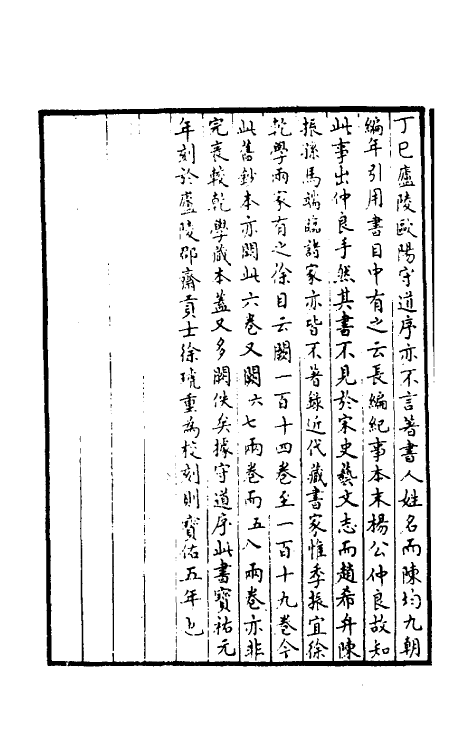 丁巳廬陵歐陽守道序亦不言著書人姓名而陳均九朝
編年引用書目中有之云長編紀事本末楊公仲良故知
此事出仲良手然其書不見於宋史藝文志而趙希弁陳
振孫馬端臨諸家亦皆不著錄近代藏書家惟季振宜徐
乾學兩家有之徐目云闕一百十四卷至一百十九卷今
此舊鈔本亦闕此六卷又闕六七兩卷而五八兩卷亦非
完袠較乾學藏本蓋又多闕佚矣據守道序此書寶祐元
年刻於廬陵郡齋貢士徐琥重為校刻則寶佑五年也